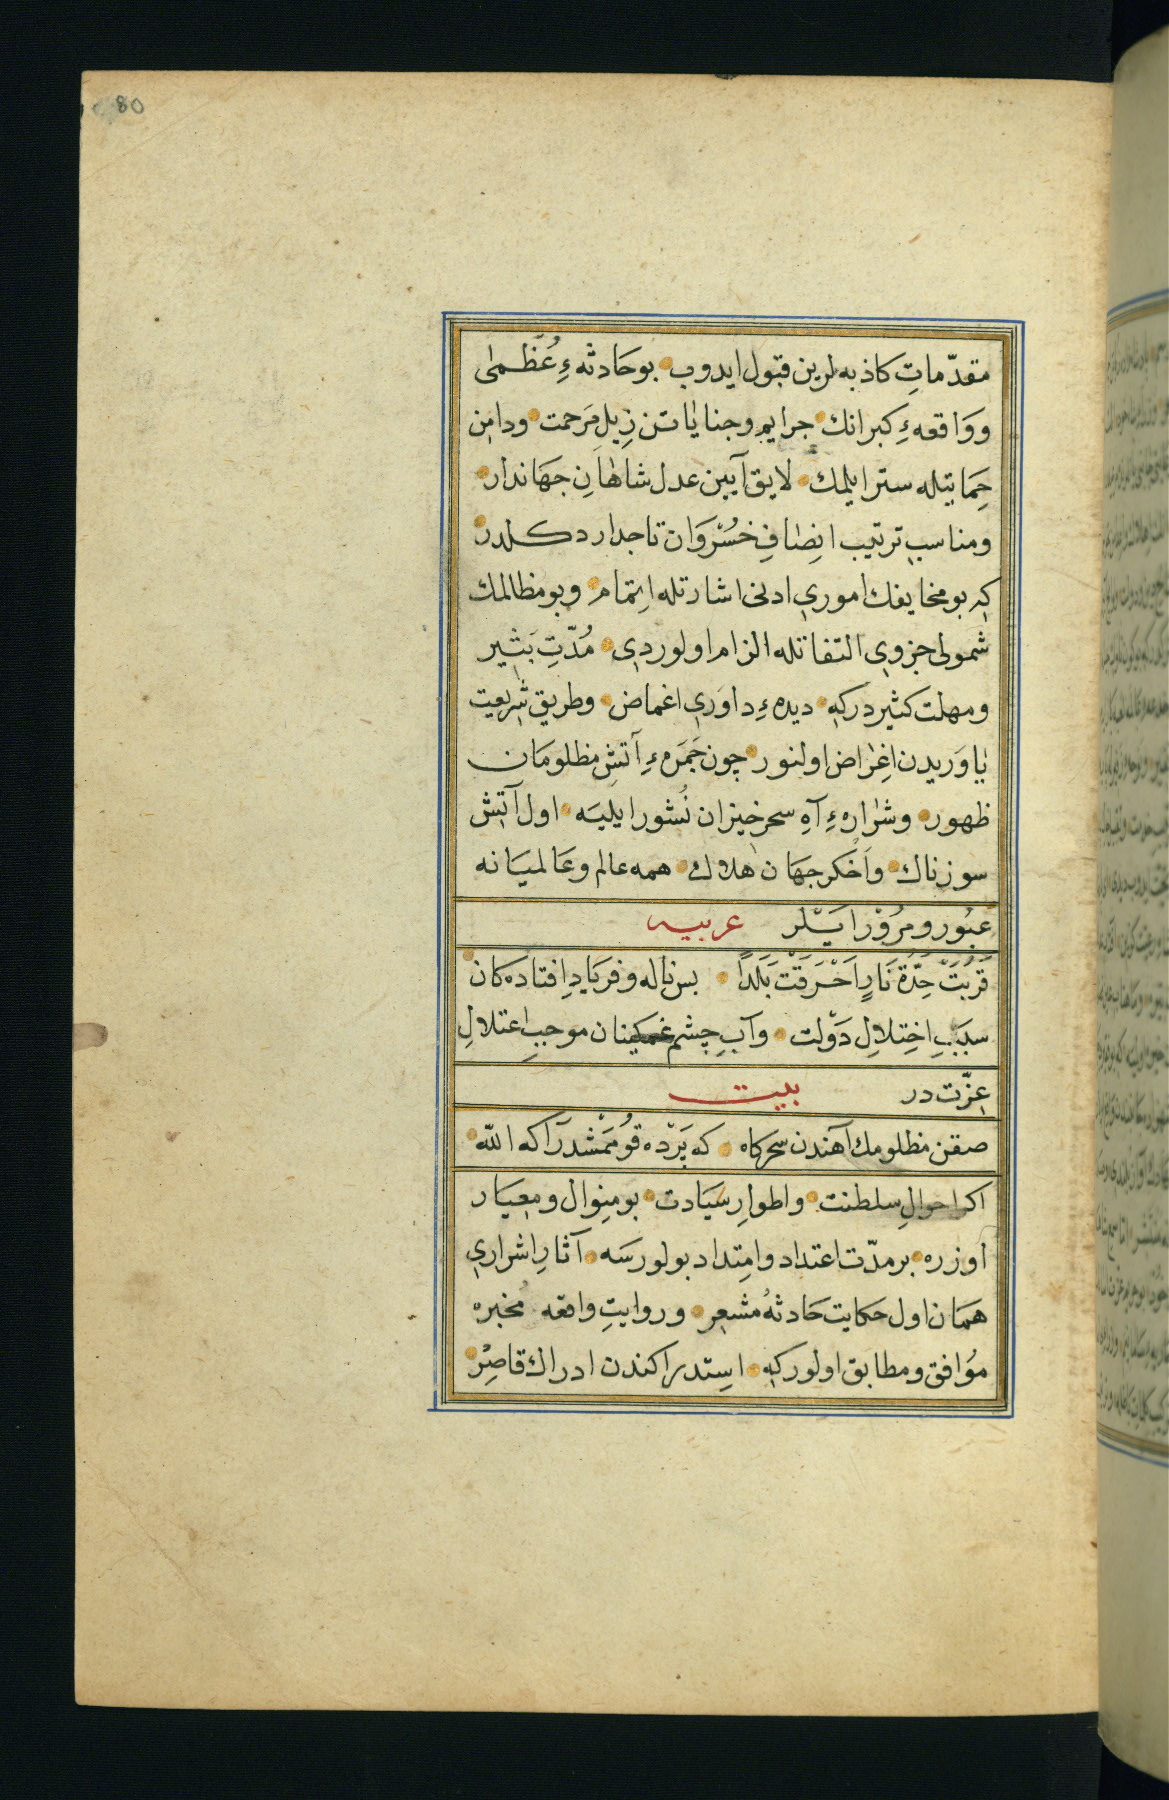 80
مقدّماتِ كاذبه لرين قبول ايدوب بوحَادثه‌ءِ عُظمٰى
ووَاقعه‌ءِ كبرانك جرايم وجنايٰاتن زِيلِ مَرحمت ودامن
حِمَايتيله ستر ايلمك لايق آيين عدل شاهٰانِ جهَاندار
ومناسبِ ترتيب انِصٰافِ خسُرْوَان تاجدار دكلدر
كه بومخايفك امورى ادنى اشارتله اِتمام وبومظالمك
شمولى جزوى التفاتله الزام اولوردى مُدّتِ بَثير
ومهلت كثيردركه ديده‌ءِ داوَرى اغماض وطريق شريعت
يٰاوَريدن اغِرٰاض اولنور چون جَمَره‌ءِ آتشِ مظلومَان
ظهور وشرٰاره‌ءِ آهِ سحرخيزان نُشور ايليَه اول آتش
سوزناك واَخكر جهَان هلاك همه عالم وعَالميَانه
عبُور ومرُوْر ايَسْلر عربيه
قَرُبَتْ حِدَّة نَارٍ اَحْرَقَتْ بَلَدًا بس ناله وفريَادِ افتاده كان
سبَبِ اختِلالِ دَوْلت وآبِ چشم غمكينان موجبِ اعتلالِ
عِزّت در بيت
صقن مظلومك آهندن سحركاه كه يَرْده قوُمَمْشدر آكه اللّه
اكر احوالِ سلطنت واطوارِ سيَادت بو منِوال ومعيَار
اوزره برمدّت اعتداد وامِتداد بولورسَه آثارِ اشرارى
همَان اول حكايت حَادثهُ مشعِر وروايتِ واقعه مخبره
موُافق ومطابق اولوركه استدراكندن ادراك قاصِرْ